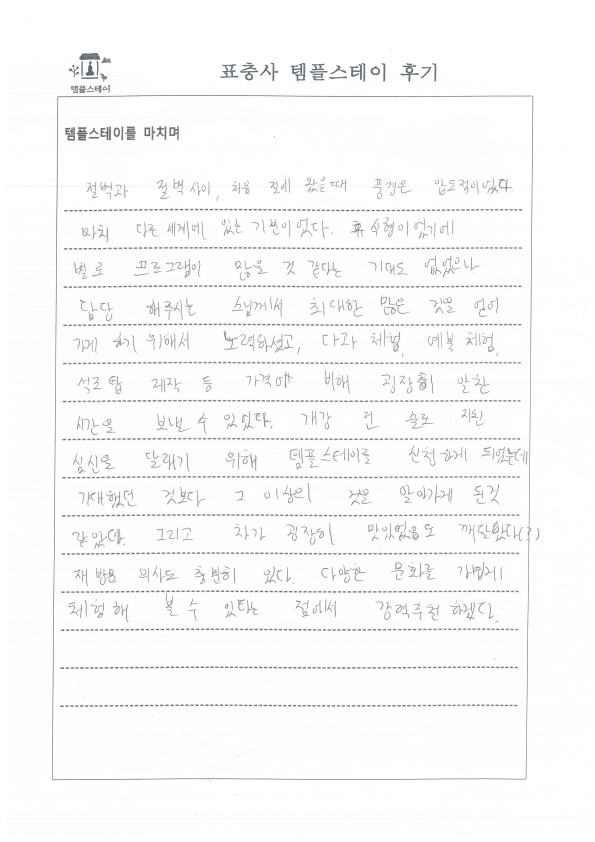 템플스테이
표충사 템플스테이 후기
템플스테이를 마치며
절벽과 절벽 사이, 처음 절에 왔을때 풍경은 압도적이었다
마치 다른 세계에 있는 기분이었다. 휴식형이었기에
별로 프로그램이 많을 것 같다는 기대도 없었으나
담당 해주시는 스님께서 최대한 많은 것을 얻어
가게 하기 위해서 노력하셨고, 다과 체험, 예불 체험,
석조탑 제작 등 가격에 비해 굉장히 알찬
시간을 보낼 수 있었다. 개강 전 술로 지친
심신을 달래기 위해 템플스테이를 신청하게 되었는데
기대했던 것보다 그 이상의 것을 알아가게 된것
같았다. 그리고 차가 굉장히 맛있었음도 깨달았다(?)
재방문 의사도 충분히 있다. 다양한 문화를 가볍게
체험해 볼 수 있다는 점에서 강력추천 하겠다.